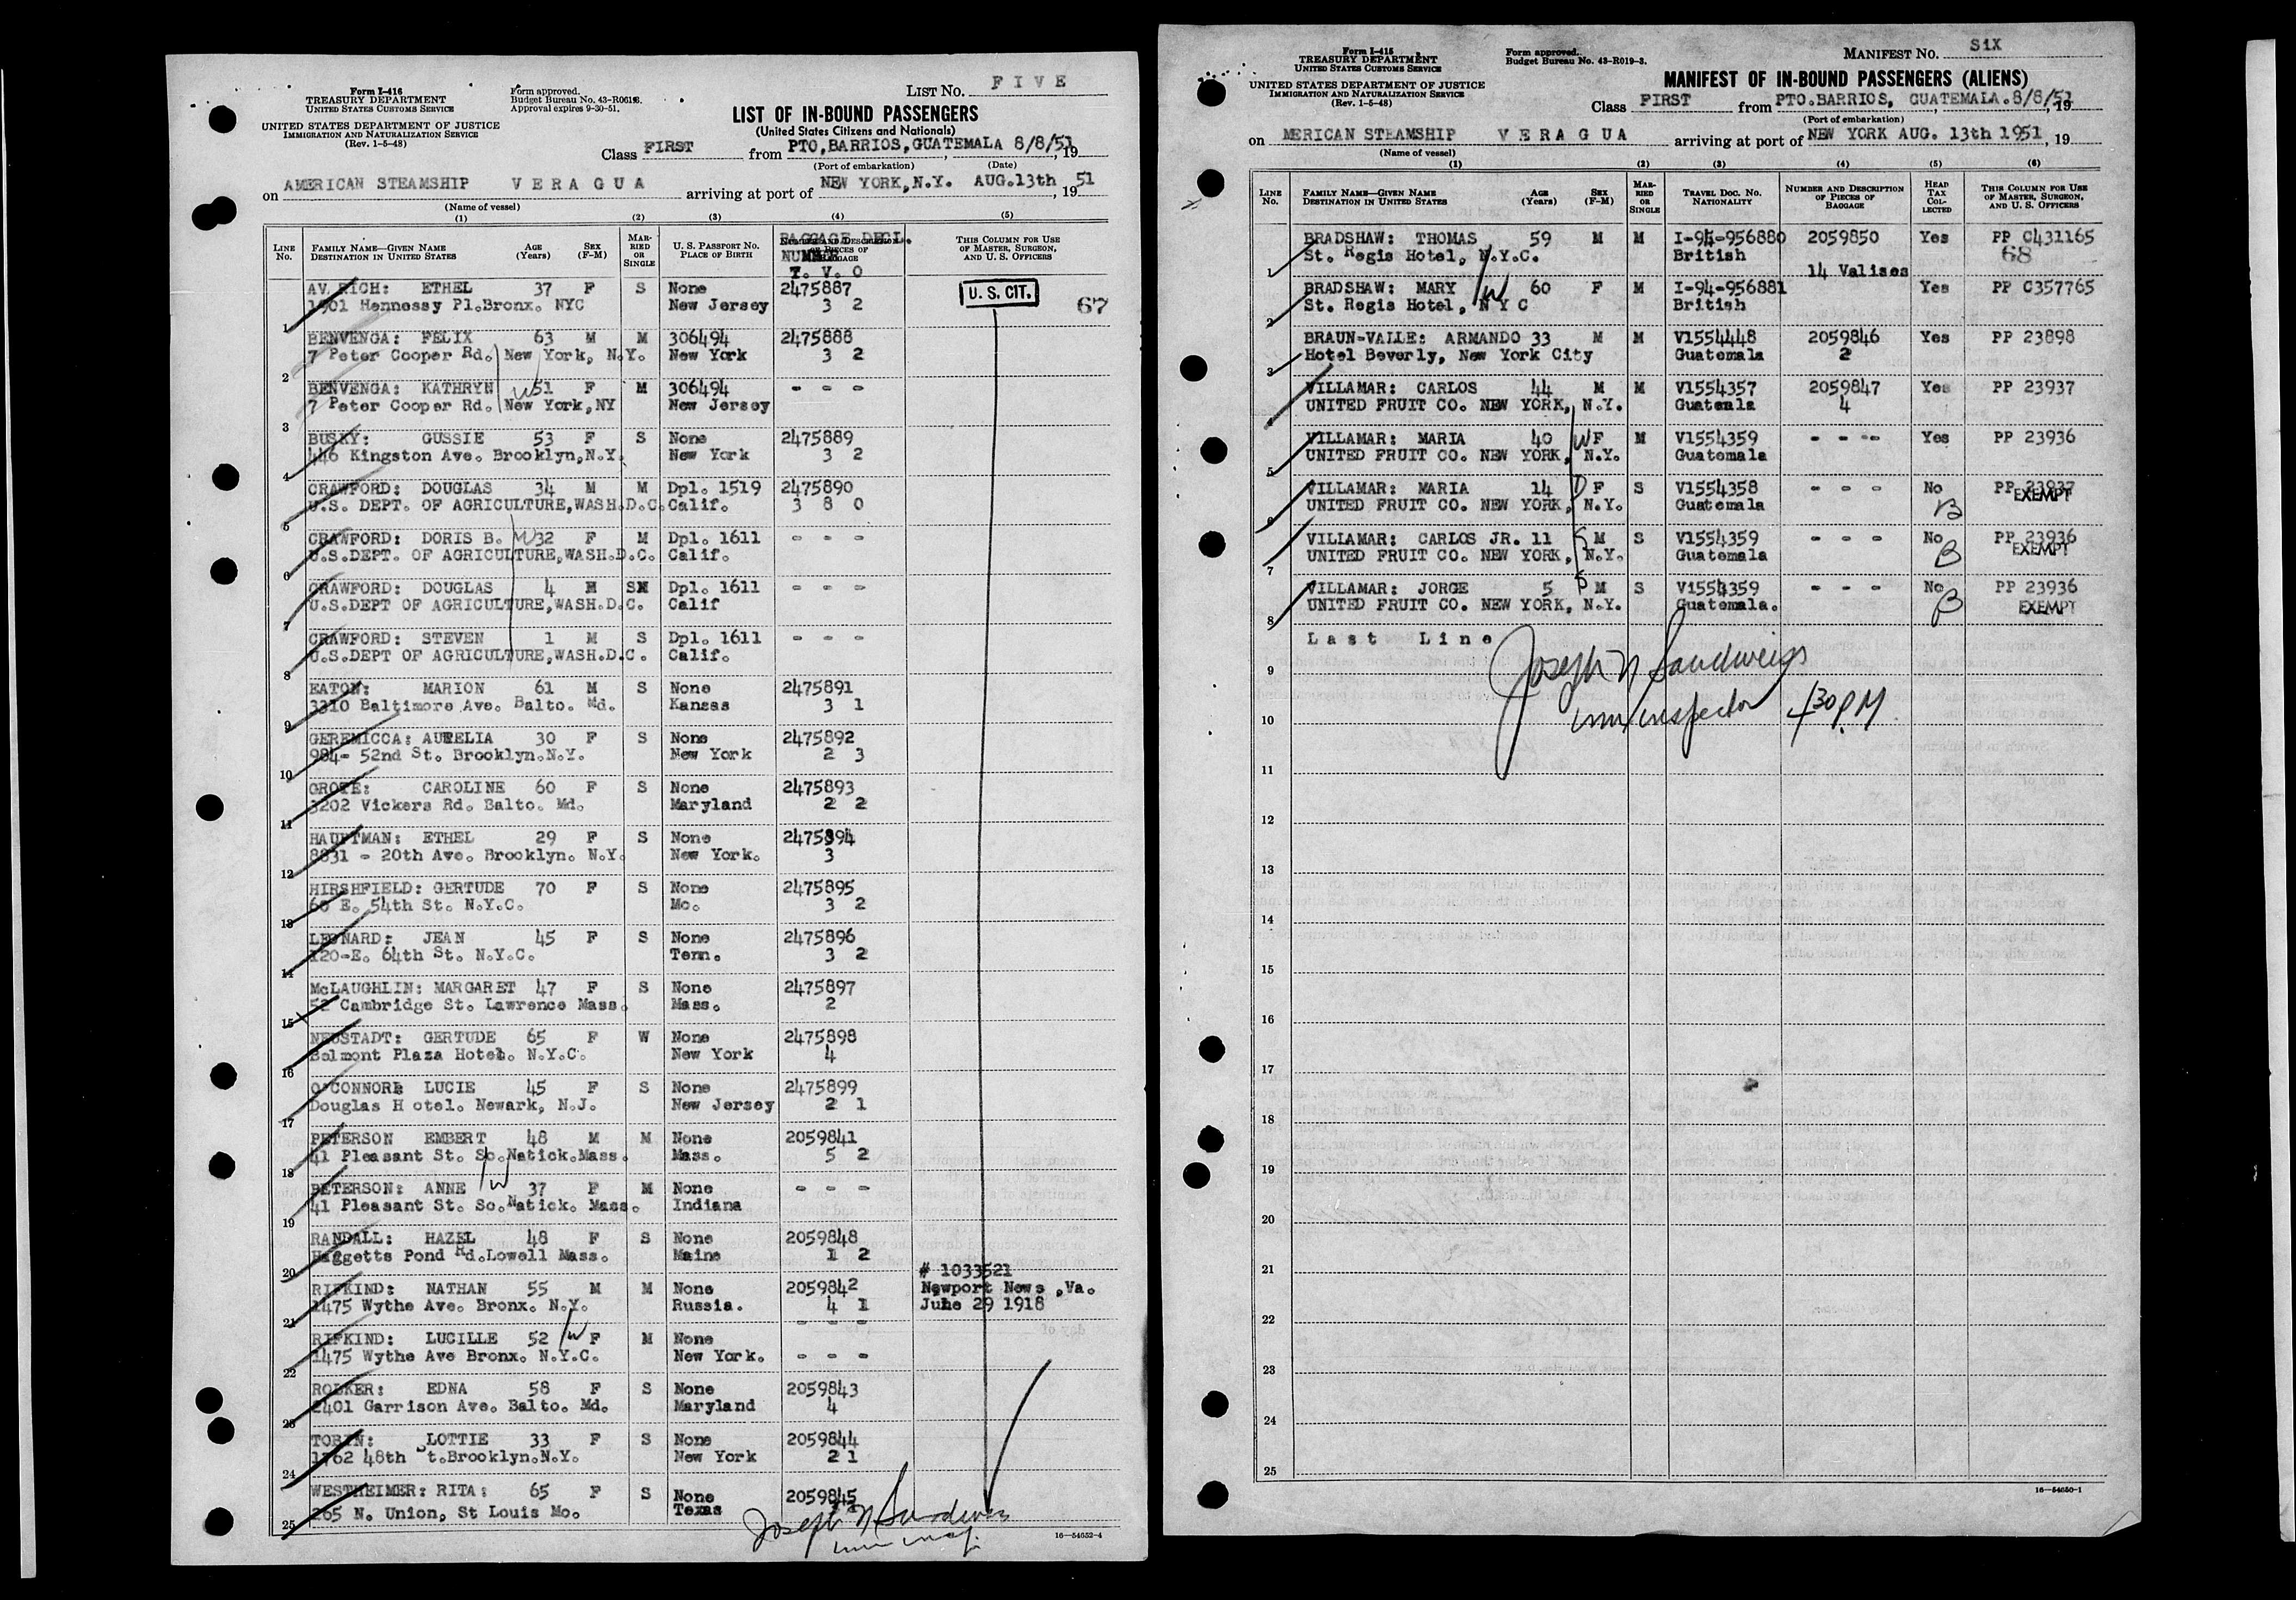 Form I-416
TREASURY DEPARTMENT
UNITED STATES CUSTOMS SERVICE
UNITED STATES DEPARTMENT OF JUSTICE
IMMIGRATION AND NATURALIZATION SERVICE
(Rev. 1-5-48)
Form approved.
Budget Bureau No. 43-R061
Approval expires 9-30-51.
LIST NO. FIVE
LIST OF IN-BOUND PASSENGERS
(United States Citizens and Nationals)
Class FIRST from PTO, BARRIOS, GUATEMALA 8/8/51, 19
(Port of embarkation) (Date)
on AMERICAN STEAMSHIP VERAGUA arriving at port of NEW YORK, N.Y. AUG. 13th, 1951
(Name of vessel)
(1) (2) (3) (4) (5)
LINE No. FAMILY NAME—GIVEN NAME DESTINATION IN UNITED STATES AGE (Years) SEX (F-M) MARRIED OR SINGLE U. S. PASSPORT NO. PLACE OF BIRTH NUMBER AND DESCRIPTION OF PIECES OF BAGGAGE THIS COLUMN FOR USE OF MASTER, SURGEON, AND U. S. OFFICERS
BAGGAGE DECL. NUMBE
T. V. O
AV RICH: ETHEL 37 F S None 2475887 U. S. CIT. 67
1 1901 Hennessy Pl.Bronx. NYC New Jersey 3 2
BENVENGA: FELIX 63 M M 306494 2475888
2 7 Peter Cooper Rd. New York, N.Y. New York 3 2
BENVENGA: KATHRYN W 51 F M 306494 - - -
3 7 Peter Cooper Rd. New York,NY New Jersey
BUSKY: GUSSIE 53 F S None 2475889
4 446 Kingston Ave. Brooklyn,N.Y. New York 3 2
CRAWFORD: DOUGLAS 34 M M Dpl. 1519 2475890
5 U.S. DEPT. OF AGRICULTURE,WASH.D.C. Calif. 3 8 0
CRAWFORD: DORIS B. W 32 F M Dpl. 1611 - - -
6 U.S.DEPT. OF AGRICULTURE,WASH.D.C. Calif.
CRAWFORD: DOUGLAS 4 M SM Dpl. 1611 - - -
7 U.S.DEPT OF AGRICULTURE,WASH.D.C. Calif
CRAWFORD: STEVEN 1 M S Dpl. 1611 - - -
8 U.S.DEPT OF AGRICULTURE,WASH.D.C. Calif.
EATON: MARION 61 M S None 2475891
9 3310 Baltimore Ave. Balto. Md. Kansas 3 1
GEREMICCA: AURELIA 30 F S None 2475892
10 984- 52nd St. Brooklyn.N.Y. New York 2 3
GROTE: CAROLINE 60 F S None 2475893
11 3202 Vickers Rd. Balto. Md. Maryland 2 2
HAUPTMAN: ETHEL 29 F S None 2475894
12 8831 - 20th Ave. Brooklyn. N.Y. New York. 3
HIRSHFIELD: GERTUDE 70 F S None 2475895
13 60 E. 54th St. N.Y.C. Mo. 3 2
LEONARD: JEAN 45 F S None 2475896
14 120-E. 64th St. N.Y.C. Tenn. 3 2
McLAUGHLIN: MARGARET 47 F S None 2475897
15 52 Cambridge St. Lawrence Mass. Mass. 2
NEUSTADT: GERTUDE 65 F W None 2475898
16 Belmont Plaza Hotel. N.Y.C. New York 4
O'CONNOR: LUCIE 45 F S None 2475899
17 Douglas H otel. Newark, N.J. New Jersey 2 1
PETERSON EMBERT 48 M M None 2059841
18 41 Pleasant St. So.Natick.Mass. Mass. 5 2
PETERSON: ANNE W 37 F M None - - -
19 41 Pleasant St. So.Natick. Mass. Indiana
RANDALL: HAZEL 48 F S None 2059848
20 Haggetts Pond Rd.Lowell Mass. Maine 1 2
# 1033521
RIFKIND: NATHAN 55 M M None 2059842 Newport News ,Va.
21 1475 Wythe Ave. Bronx. N.Y. Russia. 4 1 June 29 1918
- - -
RIFKIND: LUCILLE 52 W F M None
22 1475 Wythe Ave Bronx. N.Y.C. New York. - - -
RODKER: EDNA 58 F S None 2059843
23 2401 Garrison Ave. Balto. Md. Maryland 4
TOBIN: LOTTIE 33 F S None 2059844
24 1762 48th St.Brooklyn.N.Y. New York 2 1
WESTHEIMER: RITA: 65 F S None 2059845
25 265 N. Union, St Louis Mo. Texas
Joseph N Sandweiss
imm insp.
16—54652-4
Form I-415
TREASURY DEPARTMENT
UNITED STATES CUSTOMS SERVICE
UNITED STATES DEPARTMENT OF JUSTICE
IMMIGRATION AND NATURALIZATION SERVICE
(Rev. 1-5-48)
Form approved.
Budget Bureau No. 43-R019-3.
MANIFEST NO. SIX
MANIFEST OF IN-BOUND PASSENGERS (ALIENS)
Class FIRST from PTO.BARRIOS, GUATEMALA.8/8/51, 19
(Port of embarkation)
on MERICAN STEAMSHIP VERAGUA arriving at port of NEW YORK AUG. 13th 1951, 19
(Name of vessel)
(1) (2) (3) (4) (5) (6)
LINE No. FAMILY NAME—GIVEN NAME DESTINATION IN UNITED STATES AGE (Years) SEX (F-M) MARRIED OR SINGLE TRAVEL DOC. NO. NATIONALITY NUMBER AND DESCRIPTION OF PIECES OF BAGGAGE HEAD TAX COLLECTED THIS COLUMN FOR USE OF MASTER, SURGEON, AND U. S. OFFICERS
BRADSHAW: THOMAS 59 M M I-94-956880 2059850 Yes PP C431165
1 St. Regis Hotel, N.Y.C. British 14 Valises 68
BRADSHAW: MARY W 60 F M I-94-956881 Yes PP C357765
2 St. Regis Hotel, N Y C British
BRAUN-VALLE: ARMANDO 33 M M V1554448 2059846 Yes PP 23898
3 Hotel Beverly, New York City Guatemala 2
VILLAMAR: CARLOS 44 M M V1554357 2059847 Yes PP 23937
4 UNITED FRUIT CO. NEW YORK, N.Y. Guatemala 4
VILLAMAR: MARIA 40 W F M V1554359 - - - Yes PP 23936
5 UNITED FRUIT CO. NEW YORK, N.Y. Guatemala
VILLAMAR: MARIA 14 D F S V1554358 - - - No PP 23937
6 UNITED FRUIT CO. NEW YORK, N.Y. Guatemala B EXEMPT
VILLAMAR: CARLOS JR. 11 S M S V1554359 - - - No PP 23936
7 UNITED FRUIT CO. NEW YORK, N.Y. Guatemala B EXEMPT
VILLAMAR: JORGE 5 S M S V1554359 - - - No PP 23936
8 UNITED FRUIT CO. NEW YORK, N.Y. Guatemala. B EXEMPT
Last Line
9 Joseph N Sandweiss
10 imm inspector 430 PM
11
12
13
14
15
16
17
18
19
20
21
22
23
24
25
16—54650-1